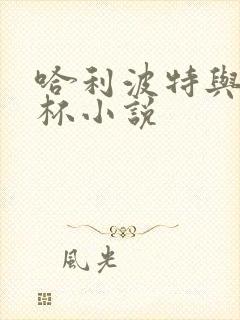 哈利波特與
杯小說
風光